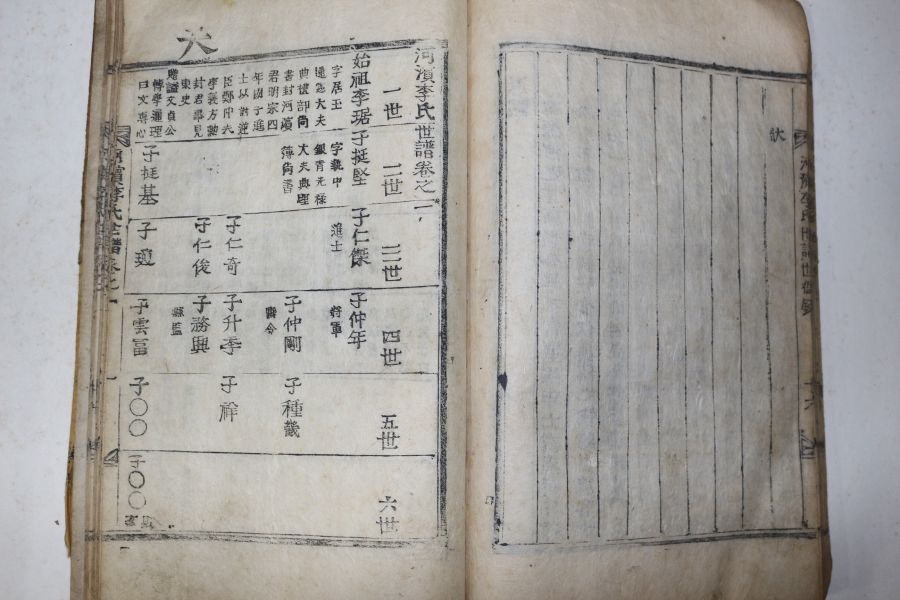 河濱李氏世譜卷之一
一世
二世
三世
四世
五世
六世
始祖李琚
字居玉
通憲大夫
典禮部尙
書封河濱
君明宗四
年國子進
士以討逆
臣鄭仲夫
李義方勳
封君事見
東史
贈諡文貞公
博學通理
曰文
子挺堅
字義中
銀靑光祿
大夫典理
簿尙書
子仁傑
進士
子仲年
將軍
子仲剛
子種
子仁奇
子升季
子祥
子仁俊
子務興
縣監
子挺基
子瓊
子雲富
子〇〇
子〇〇
大
李氏世譜卷之一
李氏世譜